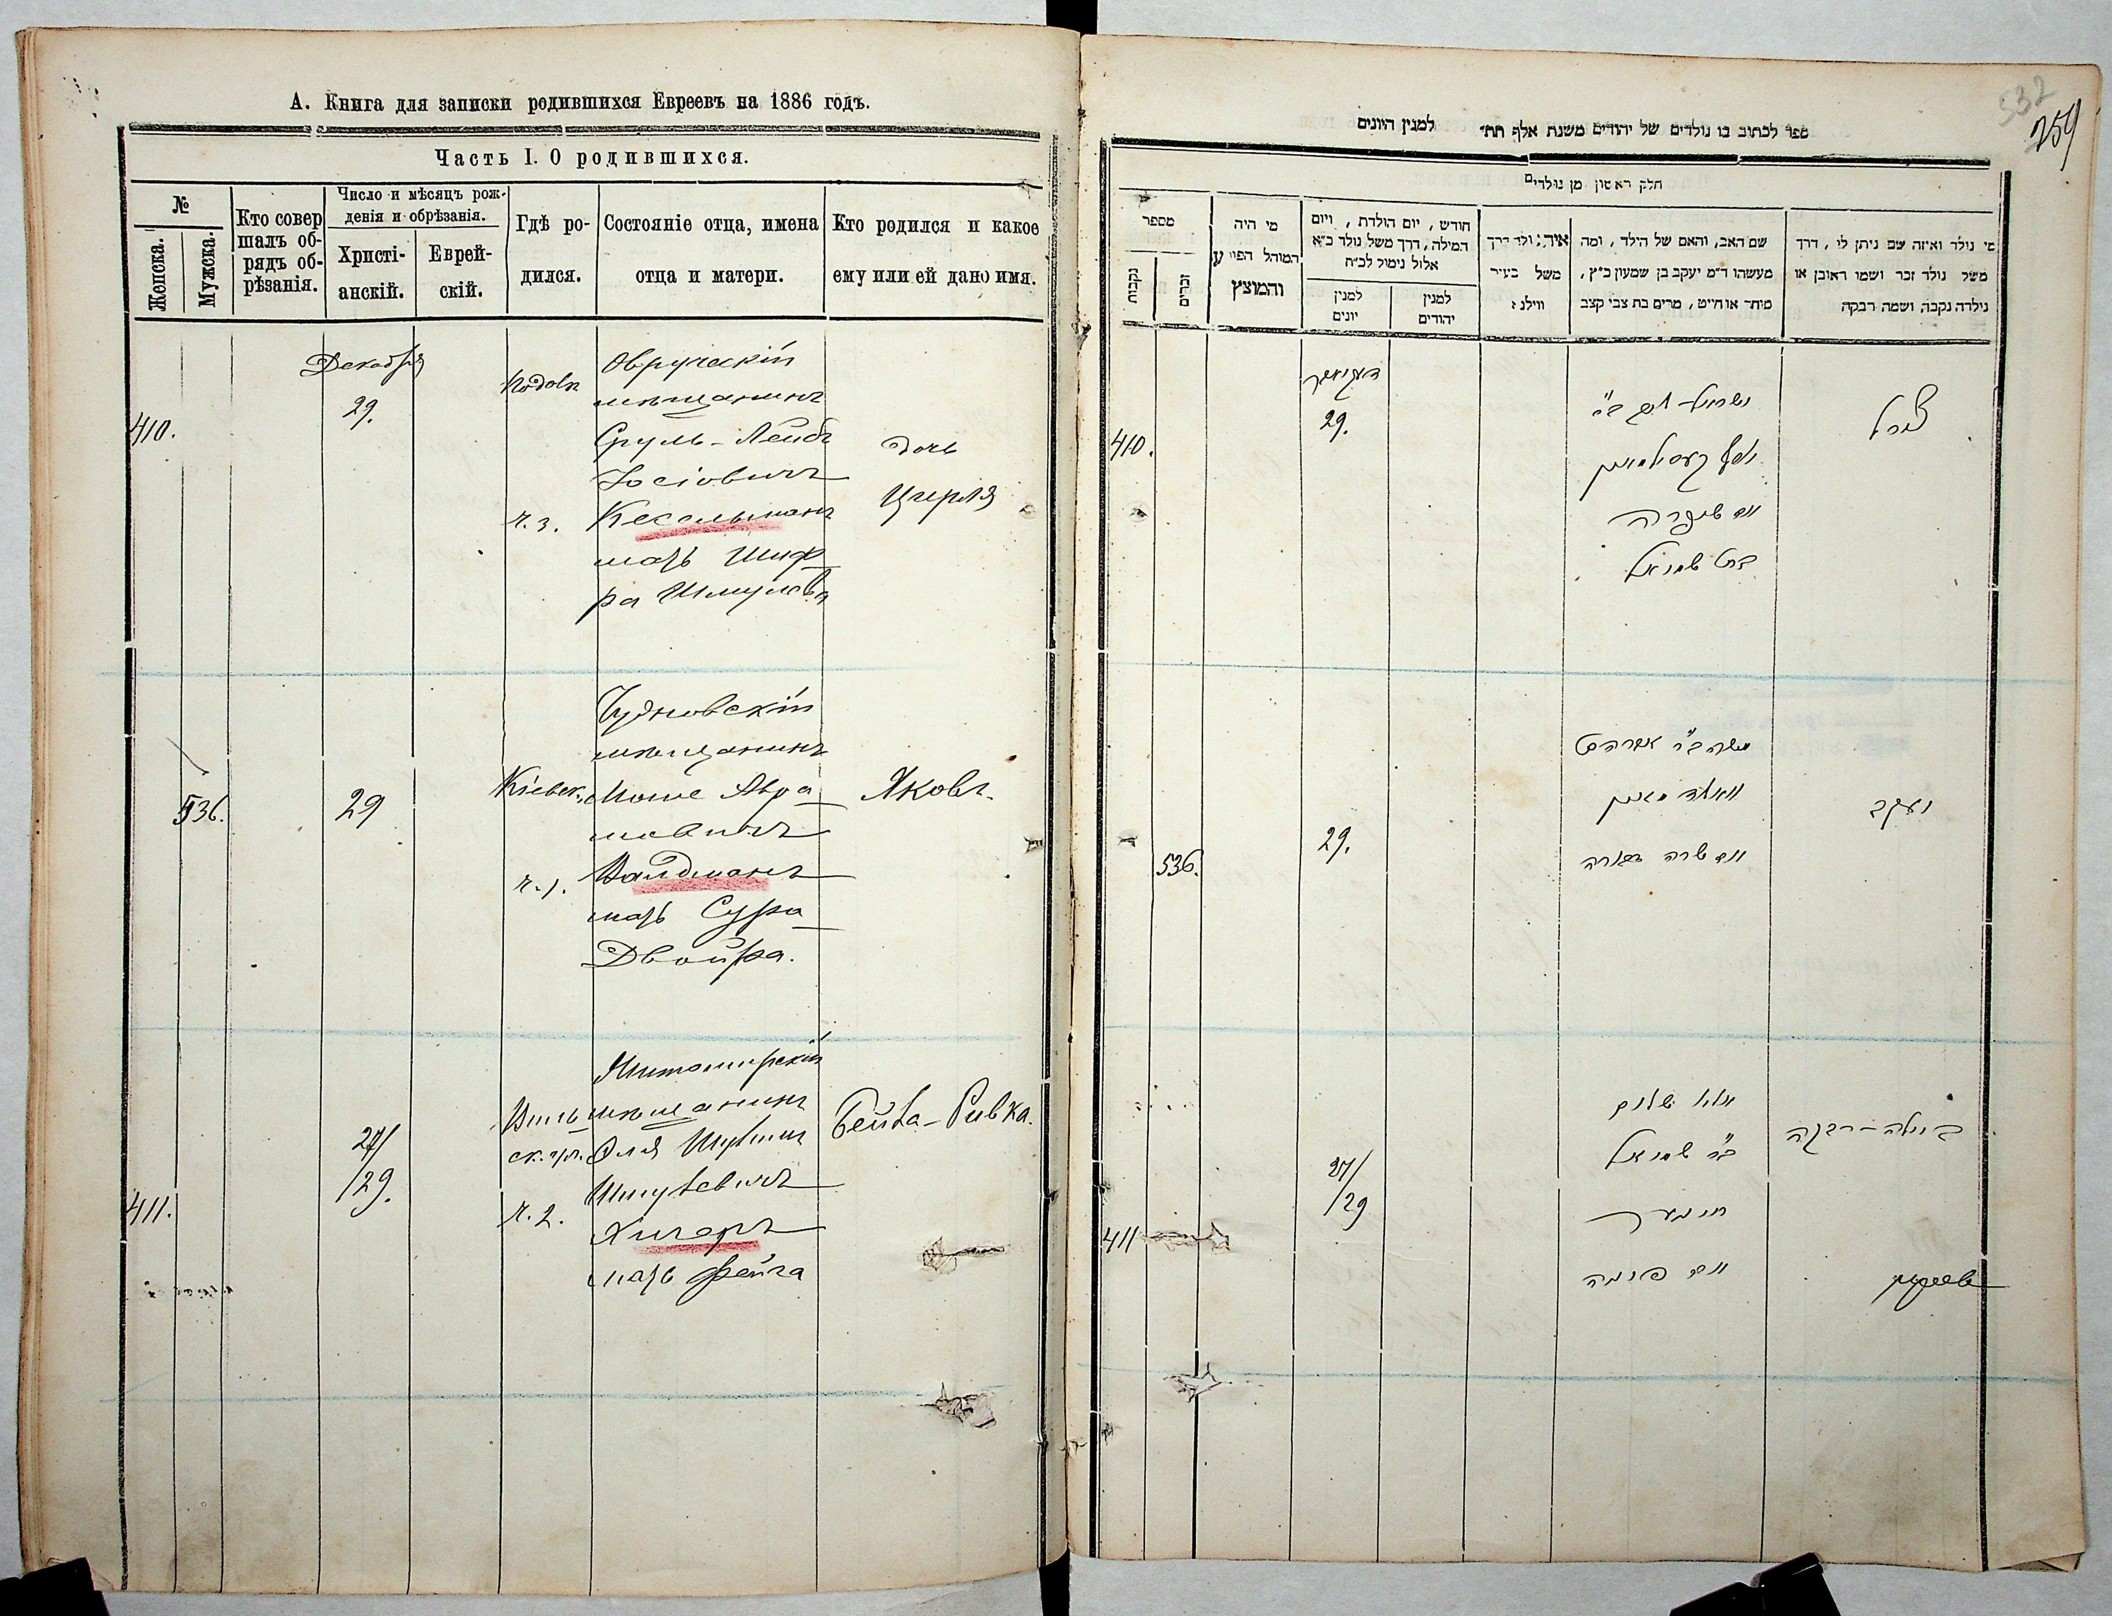 А. Книга для записки родившихся Евреевъ на 1886 годъ.
Часть I. О родившихся.
№
Женска.
Мужска.
Кто совер
шалъ об-
рядъ об-
рѣзанія.
Число и мѣсяцъ рож-
денія и обрѣзанія.
Христі-
анскій.
Еврей-
скій.
Гдѣ ро-
дился.
Состояніе отца, имена
отца и матери.
Кто родился и какое
ему или ей дано имя.
410.
Декабря
29.
ч. 3.
Овручскій
мѣщанинъ
Сруль-Лейбъ
Іосіовичъ
Кесельманъ
мать Шиф
ра Шмулева
дочь
Церля
536.
29
Кіевск.
ч. 1.
Чудновскій
мѣщанинъ
Моше Авра
мовичъ
Вайдманъ
мать Сура
Двойра.
Яковъ.
411.
27/
/29.
ч. 2.
Житомирскій
мѣщанинъ
Хигеръ
мать Фейга
Бейла-Ривка.
532
259
ספר לכתוב בו נולדים של יהודים משנת אלף תת״ למנין היונים
חלק ראשון מן נולדים
מספר
נקבות
זכרים
מי היה
המוהל הפורע
והמוצץ
חודש, יום הולדת, ויום
המילה, דרך משל נולד כ״א
אלול נימול לכ״ח
למנין
יונים
למנין
יהודים
משל בעיר
ווילנא
שם האב, והאם של הילד, ומה
מעשהו ד״מ יעקב בן שמעון כ״ץ,
סוחר או חייט, מרים בת צבי קצב
מי נולד ואיזה שם ניתן לו, דרך
משל נולד זכר ושמו ראובן או
נילדה נקבה, ושמה רבקה
410.
29.
ואם שיפרה
בת שמואל
536.
29.
משה ב״ר אברהם
וואידמאן
ואם שרה דבורה
יעקב
411
27/
/29
ב״ר שמואל
ביילה-רבקה